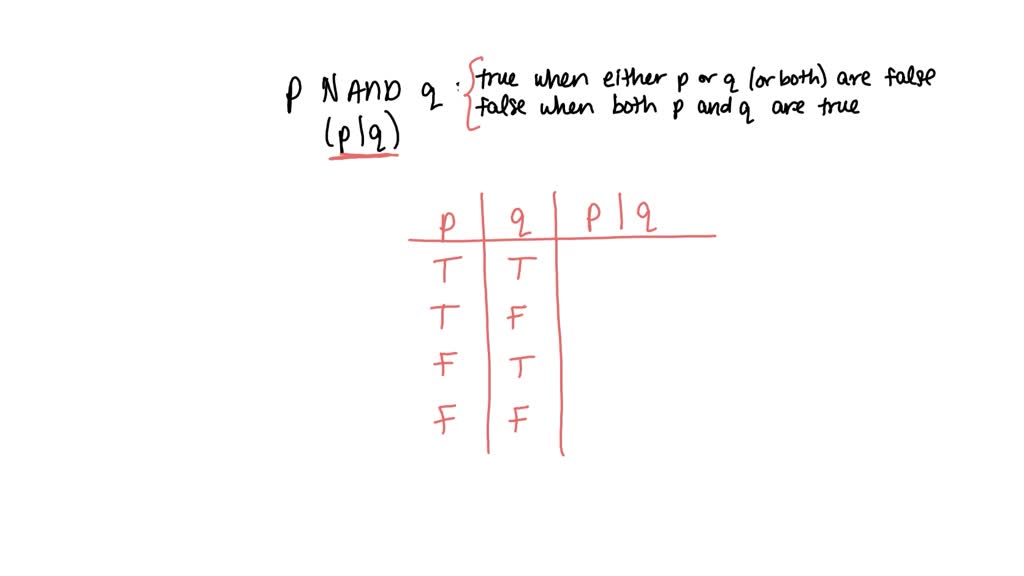 p NAND q : { true when either p or q (or both) are false
false when both p and q are true
(p|q)
p q p|q
T T
T F
F T
F F